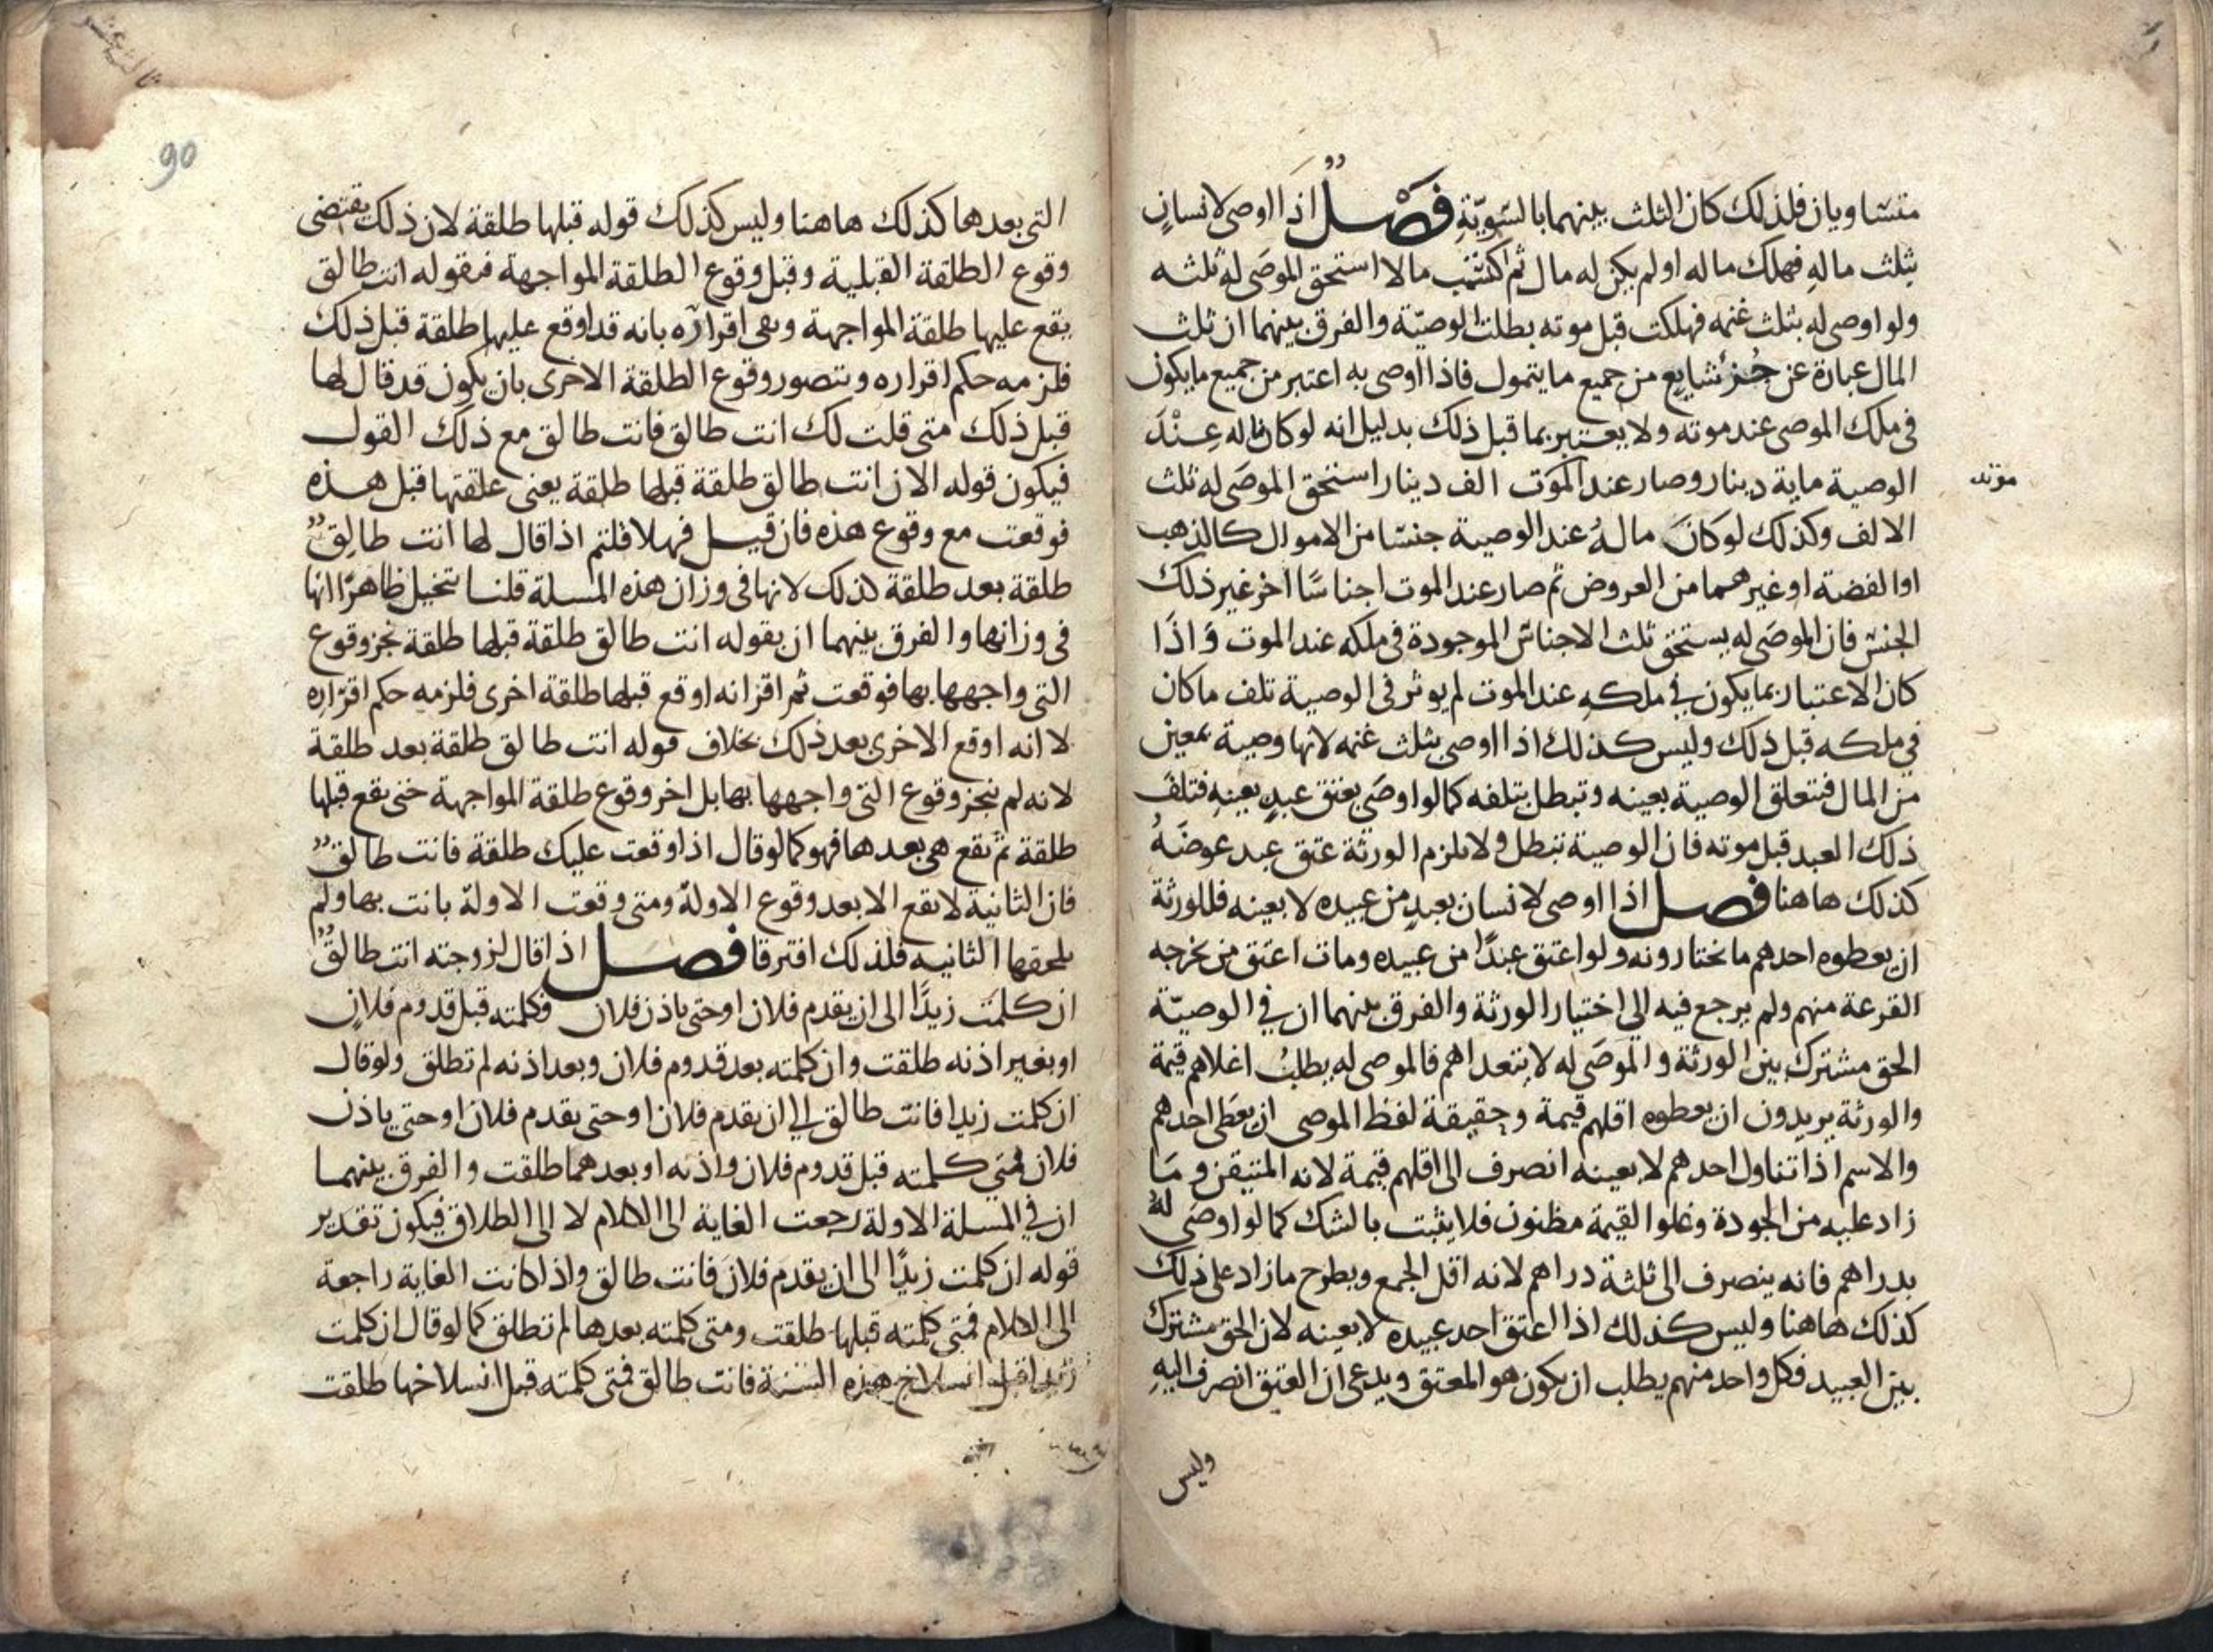 متساويان فلذلك كان الثلث بينهما بالسّويّةِ فَصْلٌ اذا اوصى لانسانٍ
بثلث مالهِ فهلك ماله او لم يكن له مال ثم اكتسب مالا استحق الموصَى له ثلثه
ولو اوصى له بثلث غنمه فهلكت قبل موته بطلت الوصيّة والفرق بينهما ان ثلث
المال عبارة عن جُزئ شايع من جميع ما يتمول فاذا اوصى به اعتبر من جميع ما يكون
فى ملك الموصى عند موته ولا يعتبر بما قبل ذلك بدليل انه لو كان ماله عِنْدَ
الوصية ماية دينار وصار عند الموت الف دينار استحق الموصَى له ثلث
موته
الالف وكذلك لو كانَ مالهُ عند الوصية جنسًا من الاموال كالذهب
او الفضة او غيرهما من العروض ثم صار عند الموت اجناسًا اخر غير ذلك
الجنس فان الموصَى له يستحق ثلث الاجناس الموجودة فى ملكه عند الموت وَاذَا
كان الاعتبار بما يكون في ملكهِ عند الموت لم يوثر فى الوصية تلف ما كان
في ملكه قبل ذلك وليس كذلك اذا اوصى بثلث غنمه لانها وصية بمعين
من المال فتتعلق الوصية بعينه وتبطل بتلفه كما لو اوصَى بعتق عبدٍ بعينه فتلفَ
ذلك العبد قبل موته فان الوصية تبطل ولا يلزم الورثة عتق عبد عوضَهُ
كذلك هاهنا فصل اذا اوصى لانسان بعبدٍ من عبيده لا بعينه فللورثة
ان يعطوه احدهم ما يختارونه ولو اعتق عبدًا من عبيده ومات اعتق من يخرجه
القرعة منهم ولم يرجع فيه الى اختيار الورثة والفرق بينهما ان في الوصيّة
الحق مشترك بين الورثة والموصَى له لا يتعداهم فالموصى له يطلبُ اغلاهم قيمة
والورثة يريدون ان يعطوه اقلهم قيمة وحقيقة لفظ الموصى ان يعطَى احدهم
والاسم اذا تناول احدهم لا بعينه انصرف الى اقلهم قيمة لانه المتيقن وَمَا
زاد عليه من الجودة وغلو القيمة مظنون فلا يثبت بالشك كما لو اوصَى له
بدراهم فانه ينصرف الى ثلثة دراهم لانه اقل الجمع ويطرح ما زاد على ذلك
كذلك هاهنا وليس كذلك اذا اعتق احد عبيده لا بعينه لان الحق مشترك
بين العبيد فكل واحد منهم يطلب ان يكون هو المعتق ويدعى ان العتق انصرف اليهِ
وليس
90
التى بعدها كذلك هاهنا وليس كذلك قوله قبلها طلقة لان ذلك يقتضى
وقوع الطلقة القبلية وقبل وقوع الطلقة المواجهة فبقوله انت طالق
يقع عليها طلقة المواجهة وبقى اقراره بانه قد اوقع عليها طلقة قبل ذلك
فلزمه حكم اقراره ويتصور وقوع الطلقة الاخرى بان يكون قد قال لها
قبل ذلك متى قلت لك انت طالق فانت طالق مع ذلك القول
فيكون قوله الان انت طالق طلقة قبلها طلقة يعنى علقتها قبل هذه
فوقعت مع وقوع هذه فان قيل فهلا قلتم اذا قال لها انت طالِقٌ
طلقة بعد طلقة كذلك لانها فى وزان هذه المسلة قلنا يتخيل ظاهرًا انها
فى وزانها والفرق بينهما ان بقوله انت طالق طلقة قبلها طلقة نجز وقوع
التى واجهها بها فوقعت ثم اقر انه اوقع قبلها طلقة اخرى فلزمه حكم اقرارِه
لا انه اوقع الاخرى بعد ذلك بخلاف قوله انت طالق طلقة بعد طلقة
لانه لم ينجز وقوع التى واجهها بها بل اخر وقوع طلقة المواجهة حتى يقع قبلها
طلقة ثم يقع هى بعدها فهو كما لو قال اذا وقعت عليك طلقة فانت طالقٌ
فان الثانية لا يقع الا بعد وقوع الاولة ومتى وقعت الاولة بانت بها ولم
يلحقها الثانيه فلذلك افترقا فصل اذا قال لزوجته انت طالقٌ
ان كلمت زيدًا الى ان يقدم فلان او حتى ياذن فلان فكلمته قبل قدوم فلانٍ
او بغير اذنه طلقت وان كلمته بعد قدوم فلان وبعد اذنه لم تطلق ولو قال
ان كلمت زيدا فانت طالق الي ان يقدم فلان او حتى يقدم فلان او حتى ياذن
فلان فمتي كلمته قبل قدوم فلان واذنه او بعدهما طلقت والفرق بينهما
ان في المسلة الاولة رجعت الغاية الى الكلام لا الى الطلاق فيكون تقدير
قوله ان كلمت زيدًا الى ان يقدم فلان فانت طالق واذا كانت الغاية راجعة
الى الكلام فمتى كلمته قبلها طلقت ومتى كلمته بعدها لم تطلق كما لو قال ان كلمت
زيدا قبل انسلاخ هذه السنة فانت طالق فمتى كلمته قبل انسلاخها طلقت